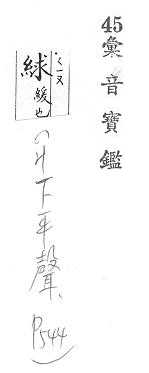 45彙音寶鑑
ㄑㄧㄡˊ
絿緩也
下平聲、P544